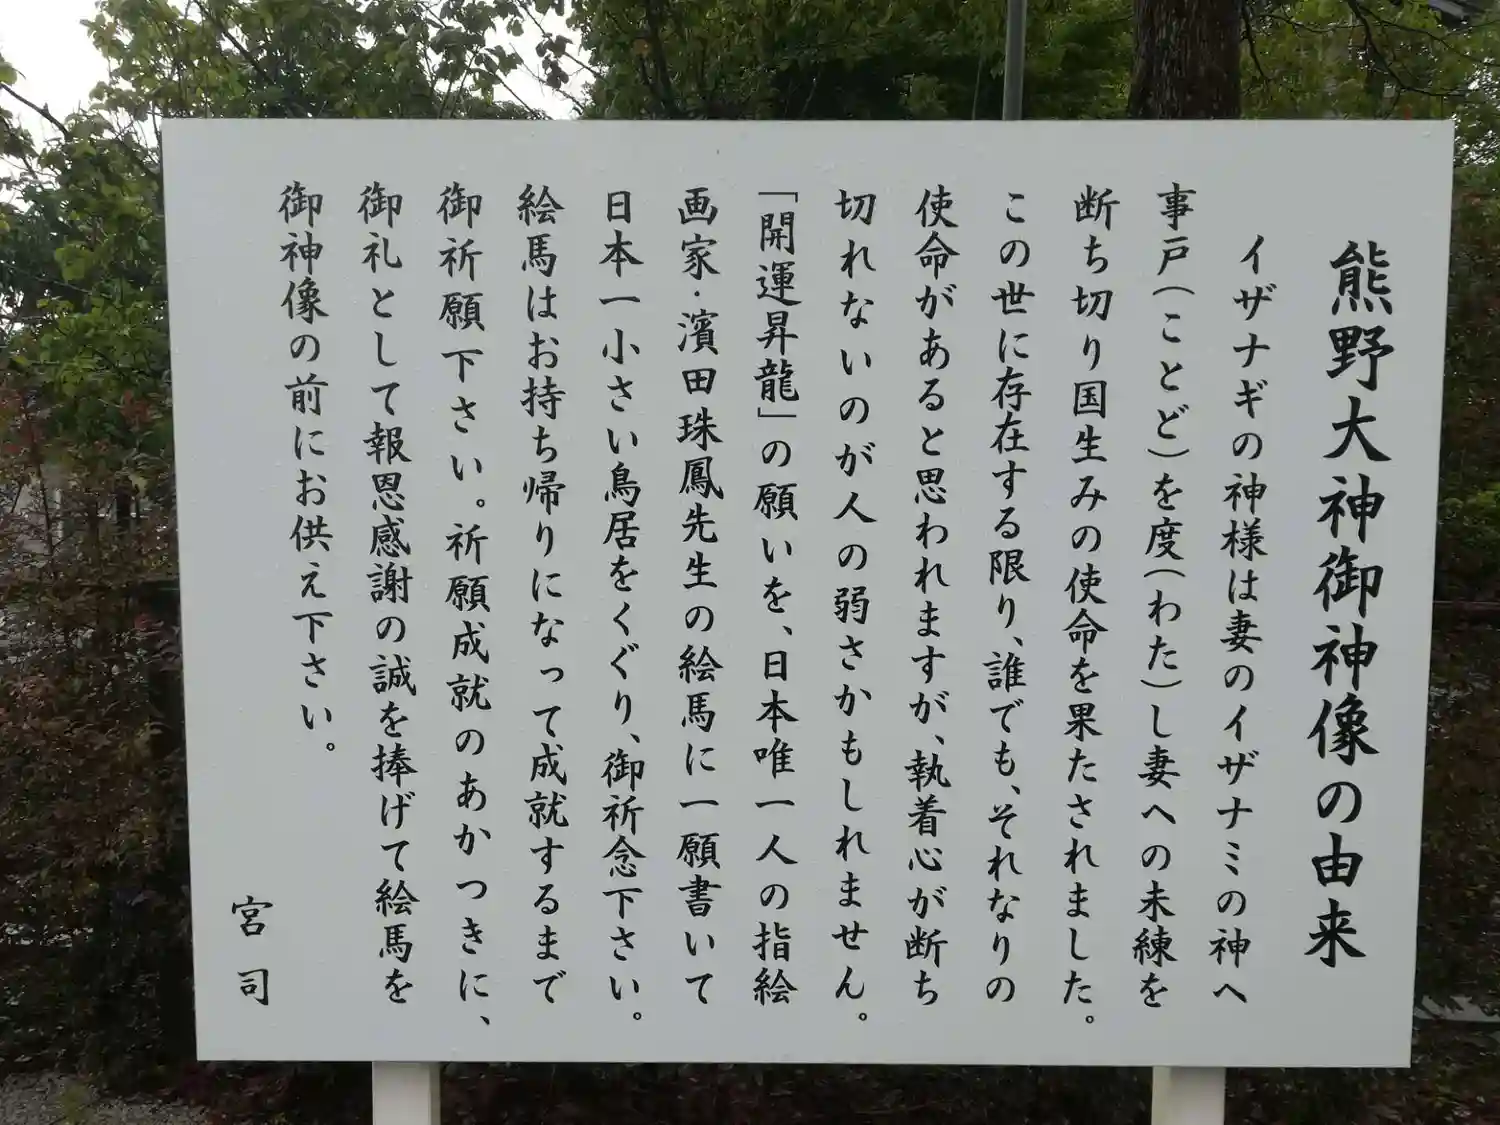 熊野大神御神像の由来
イザナギの神様は妻のイザナミの神へ
事戸(ことど)を度(わた)し妻への未練を
断ち切り国生みの使命を果たされました。
この世に存在する限り、誰でも、それなりの
使命があると思われますが、執着心が断ち
切れないのが人の弱さかもしれません。
「開運昇龍」の願いを、日本唯一人の指絵
画家・濱田珠鳳先生の絵馬に一願書いて
日本一小さい鳥居をくぐり、御祈念下さい。
絵馬はお持ち帰りになって成就するまで
御祈願下さい。祈願成就のあかつきに、
御礼として報恩感謝の誠を捧げて絵馬を
御神像の前にお供え下さい。
宮司